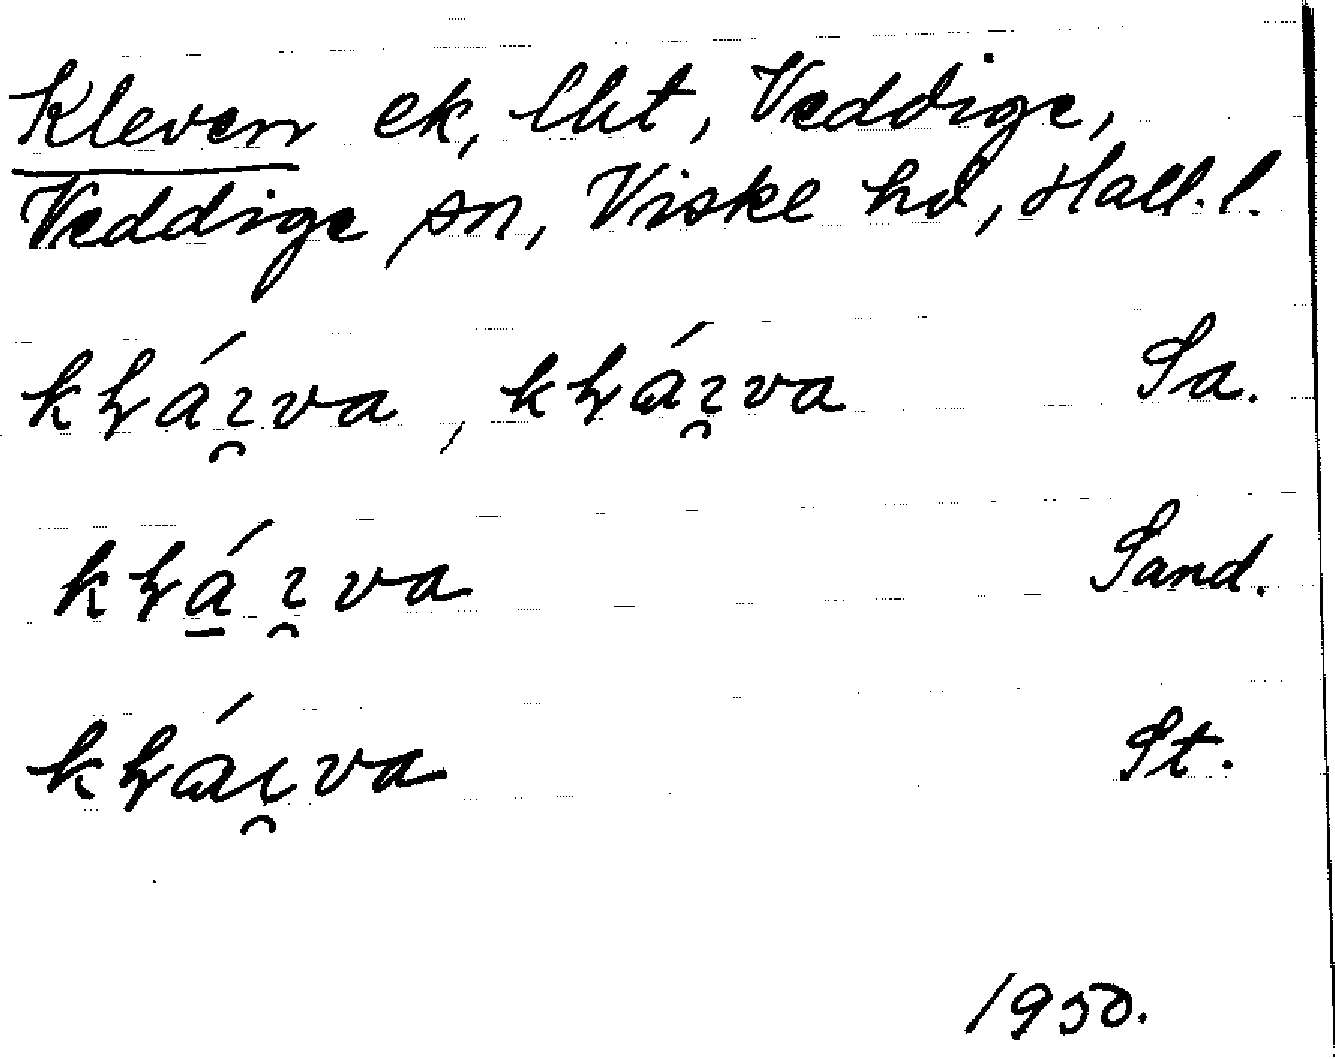 Kleven ek, lht, Veddige,
Veddige sn, Viske hd, Hall. l.
kⱡáɿ̯va, kⱡáɿ̯va Sa.
kⱡá̠ɿ̯va Sand.
kⱡáɩ̯va St.
1950.